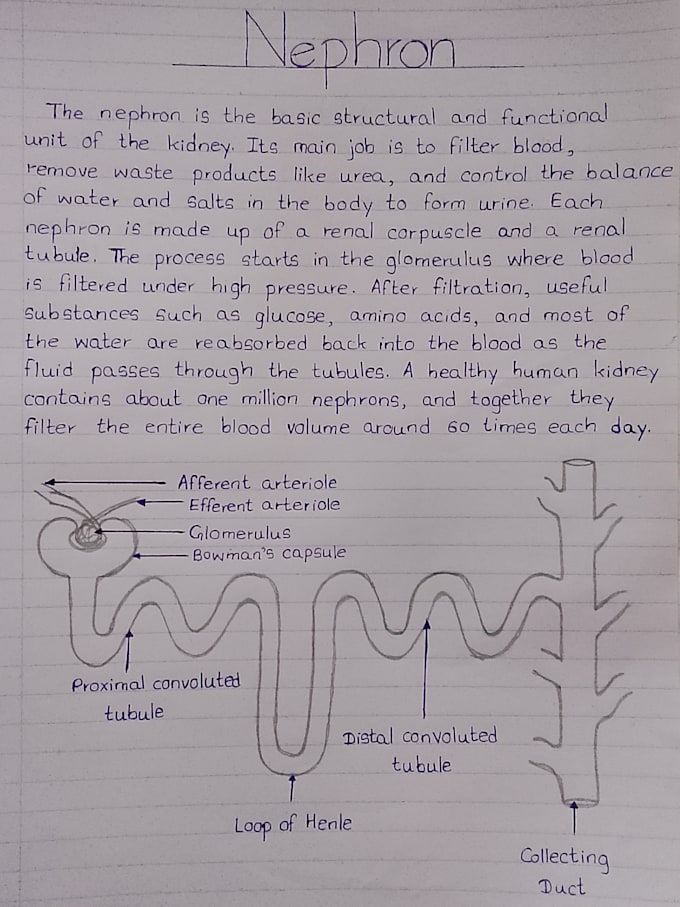 Nephron
The nephron is the basic structural and functional
unit of the kidney. Its main job is to filter blood,
remove waste products like urea, and control the balance
of water and salts in the body to form urine. Each
nephron is made up of a renal corpuscle and a renal
tubule. The process starts in the glomerulus where blood
is filtered under high pressure. After filtration, useful
substances such as glucose, amino acids, and most of
the water are reabsorbed back into the blood as the
fluid passes through the tubules. A healthy human kidney
contains about one million nephrons, and together they
filter the entire blood volume around 60 times each day.
Afferent arteriole
Efferent arteriole
Glomerulus
Bowman's capsule
Proximal convoluted
tubule
Distal convoluted
tubule
Loop of Henle
Collecting
Duct